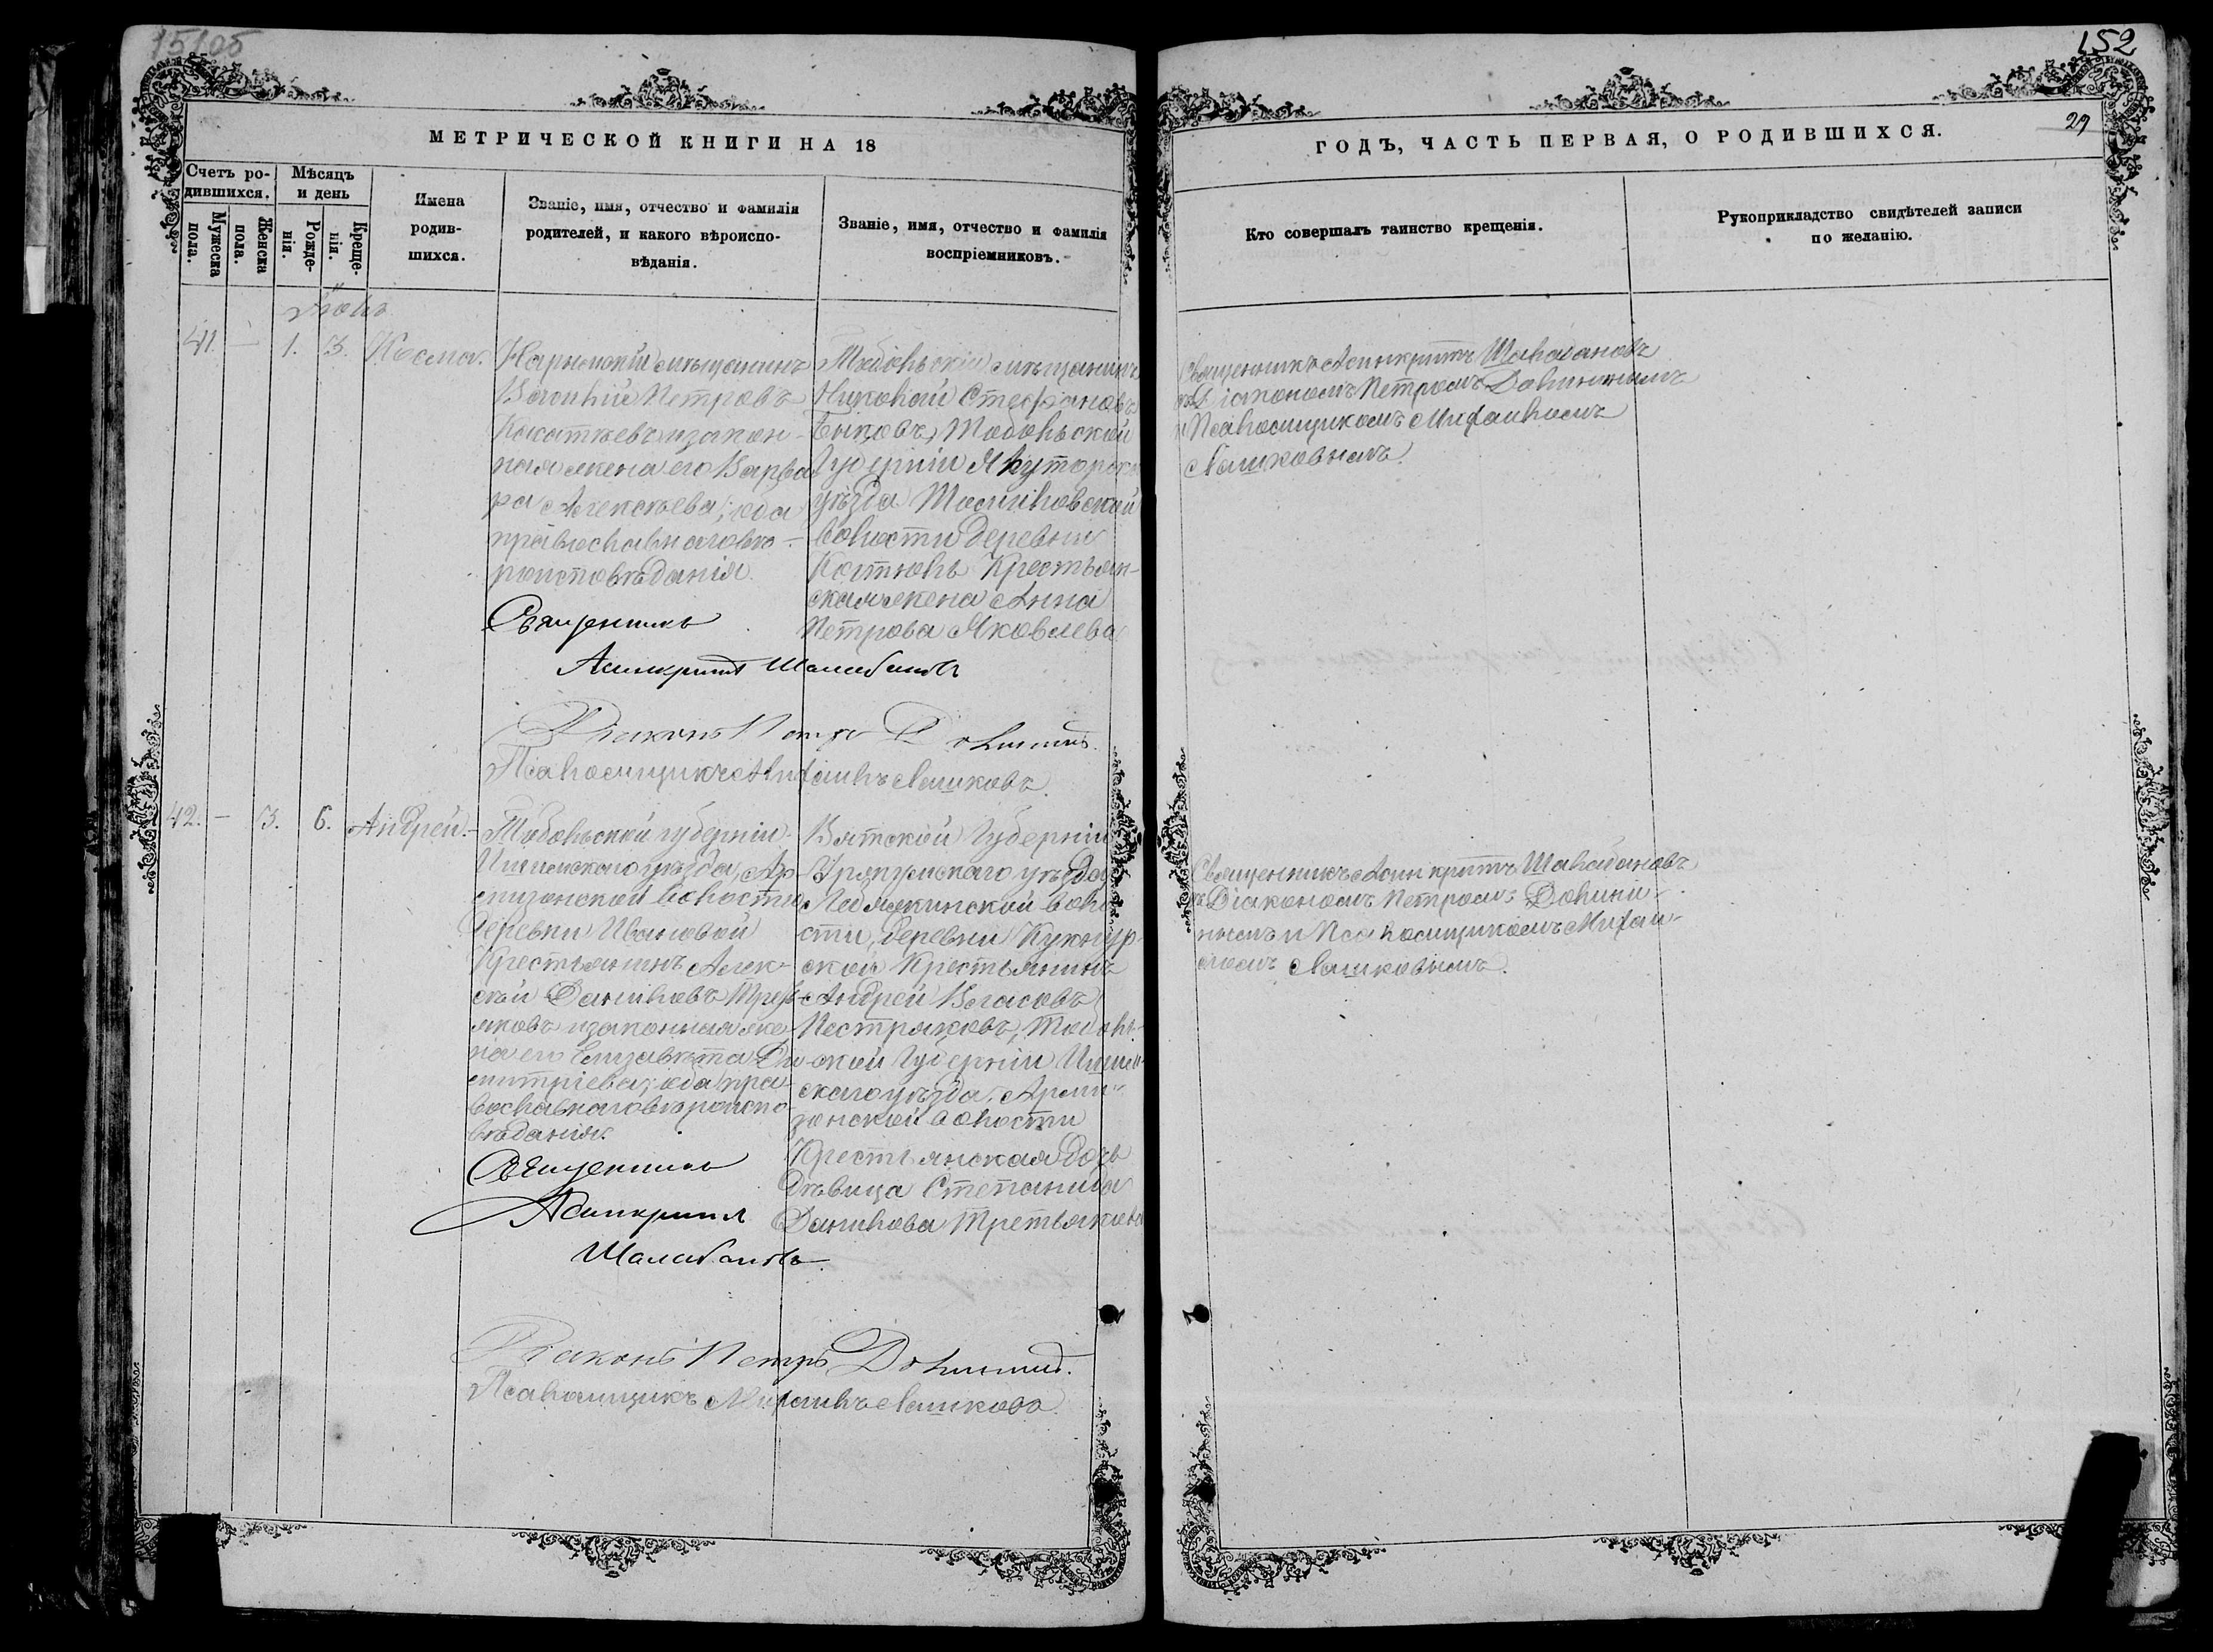 15105
152
29
МЕТРИЧЕСКОЙ КНИГИ НА 18
ГОДЪ, ЧАСТЬ ПЕРВАЯ, О РОДИВШИХСЯ.
Счетъ ро-
дившихся.
Мужеска
пола.
Женска
пола.
Мѣсяцъ
и день
Рожде-
нія.
Креще-
нія.
Имена
родив-
шихся.
Званіе, имя, отчество и фамилія
родителей, и какого вѣроиспо-
вѣданія.
Званіе, имя, отчество и фамилія
воспріемниковъ.
Кто совершалъ таинство крещенія.
Рукоприкладство свидѣтелей записи
по желанію.
41. — 1. 3. Косма.
мѣщанинъ
Василій Петровъ
и закон-
ная жена его Варва
ра Алексѣева; оба
православнаго вѣ-
роисповѣданія.
Священникъ
Асинкритъ
Діаконъ Петръ
Псаломщикъ Михаилъ
Тобольскій мѣщанинъ
Николай Стефановъ
Быковъ, Тобольской
Губерніи Ялуторск
уѣзда
волости деревни
Крестьян-
ская жена Анна
Петрова Яковлева
Священникъ Асинкритъ
съ Діакономъ Петромъ
и Псаломщикомъ Михаиломъ
42. — 3. 6. Андрей.
Тобольской губерніи
Ишимскаго уѣзда, Ар-
мизонской волости
деревни Ивановой
Крестьянинъ Алек-
сѣй Даниловъ Треть-
яковъ и законная же-
на его Елизавета Ди-
митріева; оба пра-
вославнаго вѣроиспо-
вѣданія.
Священникъ
Асинкритъ
Діаконъ Петръ
Псаломщикъ Михаилъ
Вятской Губерніи
Уржумскаго уѣзда
воло
сти, деревни
ской Крестьянинъ
Андрей Власовъ
Пестряковъ, Тоболь-
ской Губерніи Ишим-
скаго уѣзда, Арми-
зонской волости
Крестьянская дочь
дѣвица Степанида
Данилова Третьякова
Священникъ Асинкритъ
съ Діакономъ Петромъ
нымъ и Псаломщикомъ Михаи-
ломъ